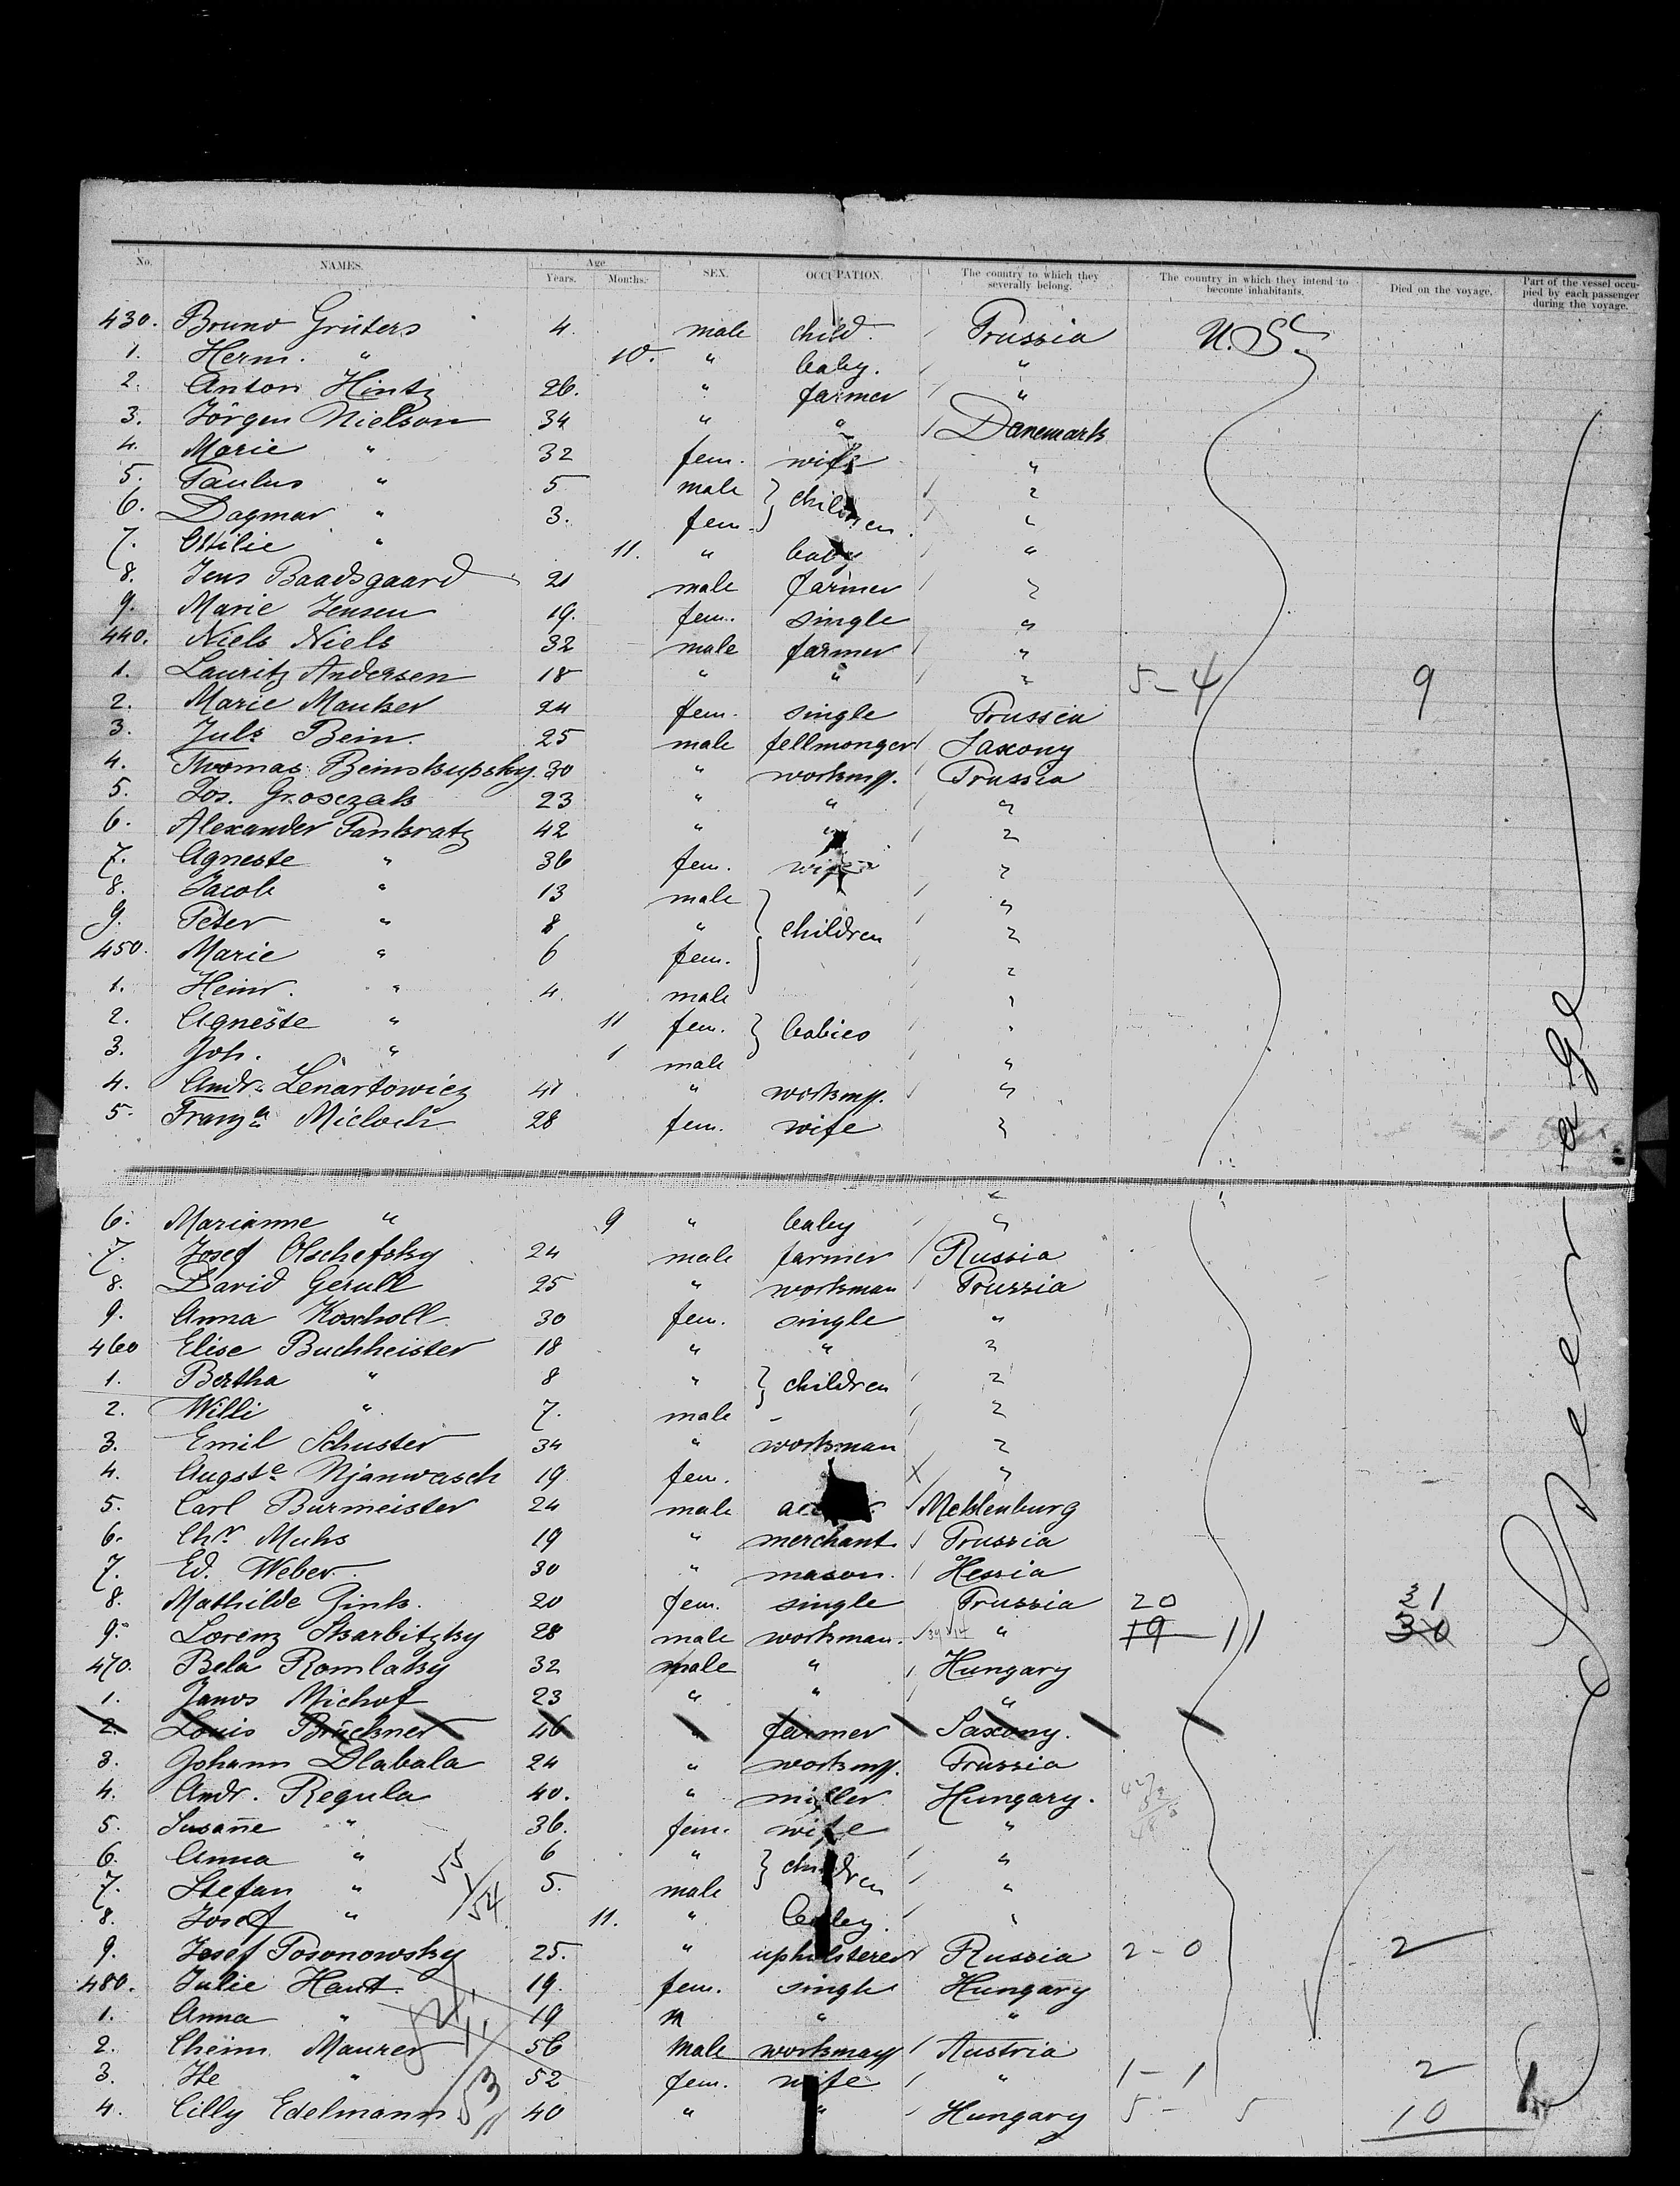 No. NAMES. Age Years. Months. SEX. OCCUPATION. The country to which they severally belong. The country in which they intend to become inhabitants. Died on the voyage. Part of the vessel occupied by each passenger during the voyage.
430. Bruno Grüters 4. male child Prussia U. S.
1. Herm. " 10. " baby. "
2. Anton Hintz 26. " farmer "
3. Jörgen Nielson 34 " " Danemark
4. Marie " 32 fem. wife "
5. Paulus " 5 male } children "
6. Dagmar " 3. fem. "
7. Ottilie " 11. " baby "
8. Jens Baadsgaard 21 male farmer "
9. Marie Jensen 19. fem. single "
440. Niels Niels 32 male farmer "
1. Lauritz Andersen 18 " " " 5-4 9
2. Marie Manker 24 fem. single Prussia
3. Juls Bein. 25 male fellmonger Saxony
4. Thomas Beinskupsky. 30 " workmn. Prussia
5. Jos. Grosczak 23 " " "
6. Alexander Pankratz 42 " " "
7. Agneste " 36 fem. wife "
8. Jacob " 13 male } children "
9. Peter " 8 " "
450. Marie " 6 fem. "
1. Heinr. " 4. male "
2. Agneste " 11 fem. } babies "
3. Joh. " 1 male "
4. Andr. Lenartowicz 41 " workmn. "
5. Franz.a Micloch 28 fem. wife "
6. Marianne " 9 " baby "
7. Josef Olschefsky 24 male farmer Russia
8. David Gerull 25 " workman Prussia
9. Anna Koscholl 30 fem. single "
460 Elise Buchheister 18 " " "
1. Bertha " 8 " } children "
2. Willi " 7. male "
3. Emil Schuster 34 " workman "
4. Augste Njanwasch 19 fem. "
5. Carl Burmeister 24 male Meklenburg
6. Chr. Muhs 19 " merchant Prussia
7. Ed. Weber 30 " mason. Hessia
8. Mathilde Gink. 20 fem. single Prussia 20 31
9. Lorenz Skarbitzky 28 male workman. " 19 11 30
470. Bela Romlaky 32 male " Hungary
1. Janos Michof 23 " " "
2. Louis Brückner 46 " farmer Saxony.
3. Johann Dlabala 24 " workmn. Prussia
4. Andr. Regula 40. " miller Hungary.
5. Susañe " 36. fem. wife "
6. Anna " 6 " } children "
7. Stefan " 5. male "
8. Josef " 11. " baby. "
9. Josef Posonowsky 25. " upholsterer Russia 2-0 2
480. Julie Hant. 19. fem. single Hungary
1. Anna " 19 " " "
2. Cheim Maurer 56 Male workman Austria
3. Ite " 52 fem. wife " 1-1 2
4. Cilly Edelmann 40 " " Hungary 5-5 10
Steerage